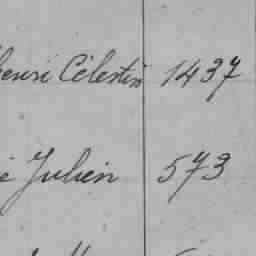 Henri Célestin 1437
é Julien 573